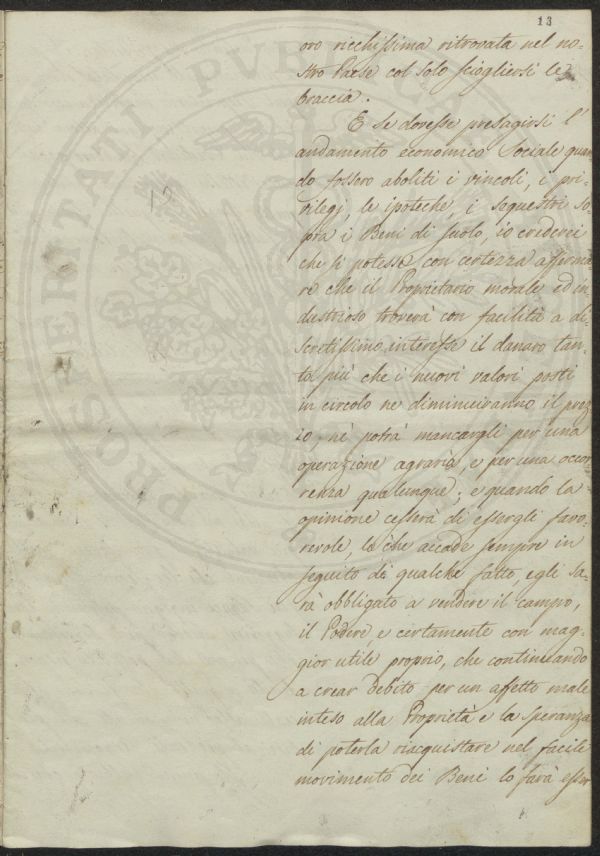 13
oro ricchissima ritrovata nel no-
stro Paese col solo sciogliersi le
braccia.
E se dovesse presagirsi l'
andamento economico sociale quan
do fossero aboliti i vincoli, i pri-
vilegj, le ipoteche, i sequestri so-
pra i Beni di suolo, io crederei
che si potesse con certezza afferma
re che il Proprietario morale ed in
dustrioso troverà con facilità a di-
scretissimo interesse il danaro tan-
to più che i nuovi valori posti
in circolo ne diminuiranno il prez
zo, nè potrà mancargli per una
operazione agraria, e per una occor
renza qualunque; e quando la
opinione cesserà di essergli favo-
revole, lo che accade sempre in
seguito di qualche fatto, egli sa-
rà obbligato a vendere il campo,
il Podere e certamente con mag-
gior utile proprio, che continuando
a crear debito per un affetto male
inteso alla Proprietà e la speranza
di poterla riacquistare nel facile
movimento dei Beni lo farà esser
PROSPERITATI PVBLICA